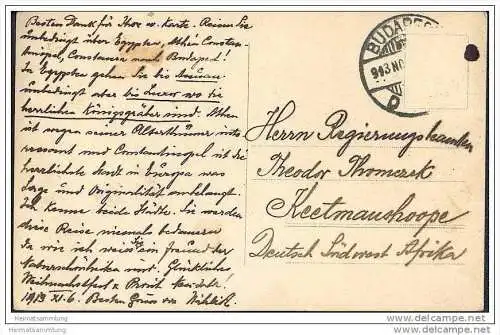 Besten Dank für Ihre w. Karte. Reisen Sie
unbedingt über Egypten, Athen Constan-
tinopel, Constanza nach Budapest!
In Egypten gehen Sie bis Assuan
unbedingt aber bis Luxor wo die
herrlichen Königsgräber sind. Athen
ist wegen seiner Alterthümer inte
ressant und Constantinopel ist die
herrlichste Stadt in Europa was
Lage und Originalität anbelangt.
Ich kenne beide Städte. Sie werden
diese Reise niemals bedauern
Da wie ich weiss Sie ein Freund der
Naturschönheiten sind. Glückliches
Weihnachtsfest u. Prosit Neujahr!
1913 XI. 6. Besten Gruss von
BUDAPES
913 NO
Herrn Regierungsbeamten
Theodor Thomczek
Keetmanshoope
Deutsch Südwest Afrika
Heimatsammlung
www.heimatsammlung.de
Heimatsammlung
www.heimatsammlung.de